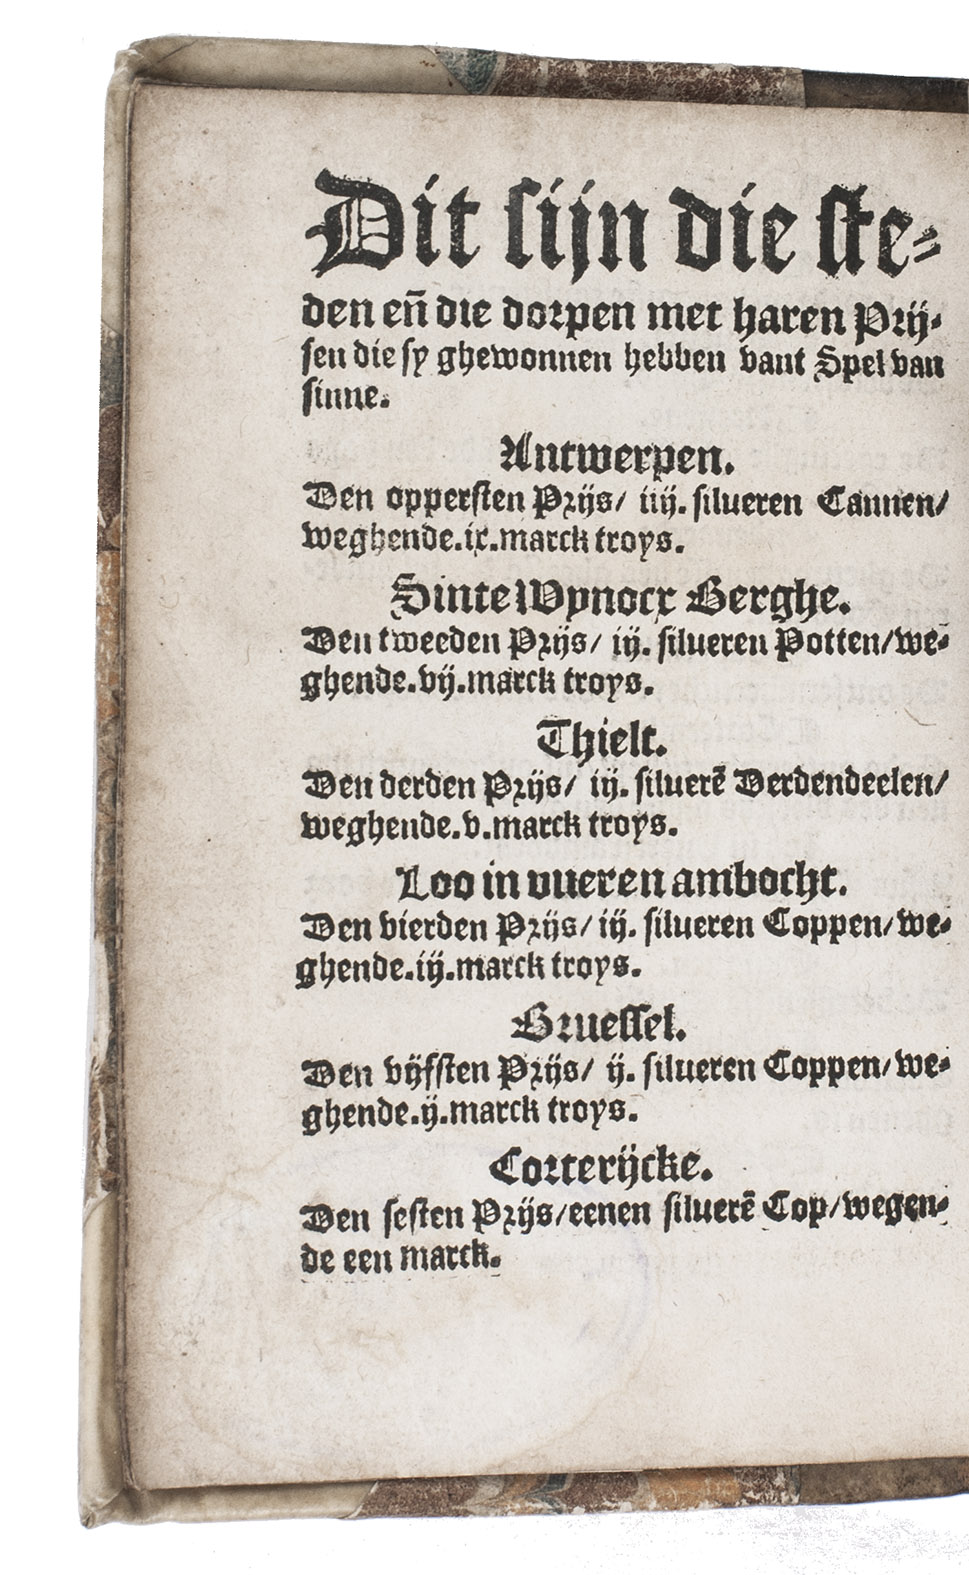 Dit sijn die ste⸗
den en̄ die dorpen met haren Prij⸗
sen die sy ghewonnen hebben vant Spel van
sinne.
Antwerpen.
Den oppersten Prijs/ iiij. silueren Cannen/
weghende.ix.marck troys.
Sinte Wynocx Berghe.
Den tweeden Prijs/ iij. silueren Potten/we⸗
ghende.vij.marck troys.
Thielt.
Den derden Prijs/ iij. siluerē Derdendeelen/
weghende.v.marck troys.
Loo in vueren ambocht.
Den vierden Prijs/ iij. silueren Coppen/we⸗
ghende.iij.marck troys.
Bruessel.
Den vijfsten Prijs/ ij. silueren Coppen/we⸗
ghende.ij.marck troys.
Corterijcke.
Den sesten Prijs/eenen siluerē Cop/wegen⸗
de een marck.